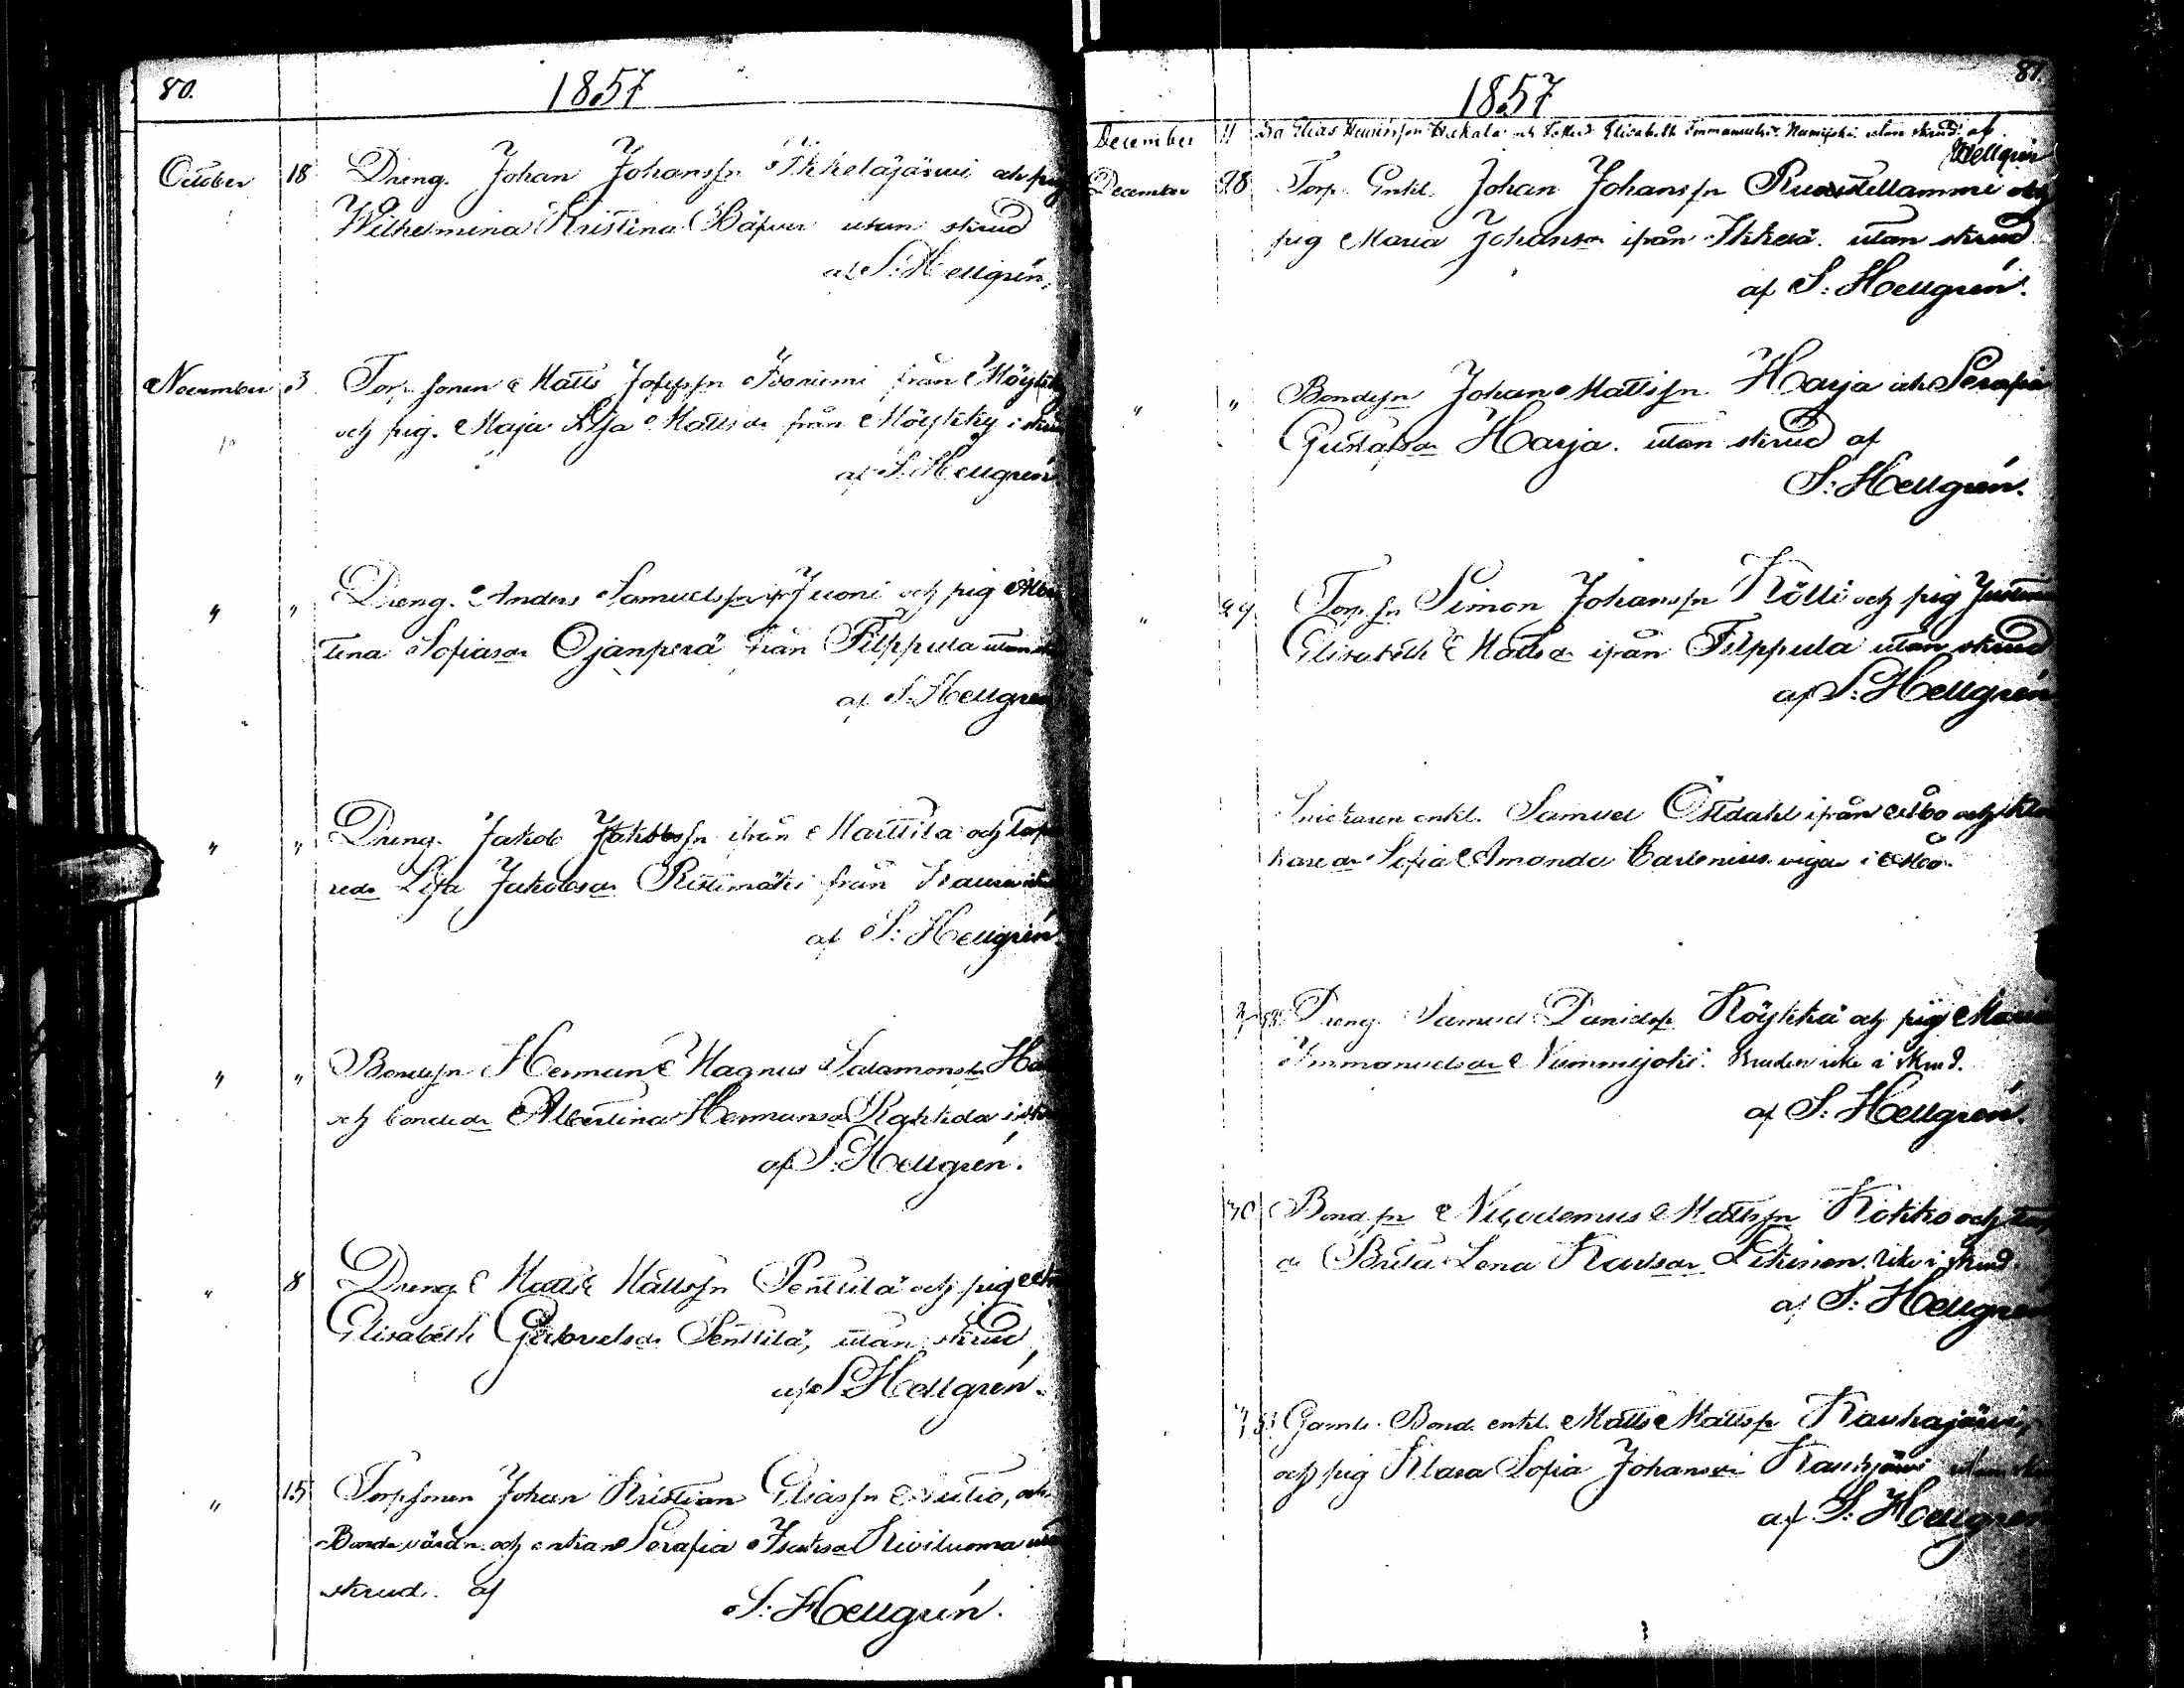 80.
1857
October 18 Dreng. Johan Johansfn Ikkeläjärwi och pig
Wilhelmina Kristina utan skrud
af S: Hellgrén.
November 3 Torp. sonen Matts Josefsfn från Möykky
och pig. Maja Lisa Mattsdr från Möykky i skrud
af S. Hellgrén
" " Dreng. Anders Samuelsfn Juoni och pig
tina Sofiasdr Ojanperä från Filppula utan
af S. Hellgrén
" " Dreng. Jakob Jakobsfn ifrån Marttila och Torp
redr Lisa Jakobsdr Ristimäki från
af S: Hellgrén
" " Bondesfn Herman Magnus Salamonsfn
och bondedr Albertina Hermansdr i
af S: Hellgrén.
" 8 Dreng. Matts Mattsfn Penttilä och pig
Elisabeth Gabrielsdr Penttilä, utan skrud
af S Hellgrén.
" 15 Torpsonen Johan Kristian Eliasfn och
Bonde värdn. och enkan Serafia Isaksdr Kiviluoma utan
skrud. af
S. Hellgrén.
81.
1857
December 11 Elias Henrikssfn och Elisabeth Immanuelsdr utan skrud af
Hellgrén
December 28 Torp. Enkl. Johan Johansfn och
pig Maria Johansdr ifrån Ikkelä. utan skrud
af S: Hellgrén.
" " Bondesfn Johan Mattsfn. Harja och Serafia
Gustafsdr Harja. utan skrud af
S: Hellgrén.
" 29 Torp. fn Simon Johansfn Kölli och pig Justina
Elisabeth Mattsdr ifrån Filppula utan skrud
af S: Hellgrén
Snickaren enkl. Samuel Östdahl ifrån Åbo och
Sofia Amanda vigde i Åbo.
Dreng Samuel Danielsfn Köykkä och pig Maria
Immanuelsdr Nummijoki. Bruden icke i skrud.
af S: Hellgrén.
30 Bond. fn Nicodemus Mattsfn Kokko och
dr Brita Lena Karlsdr icke i skrud.
af S: Hellgrén
Gamle. Bond. enkl. Matts Mattsfn Kauhajärvi,
och pig Klara Sofia Johansdr utan
af S. Hellgrén